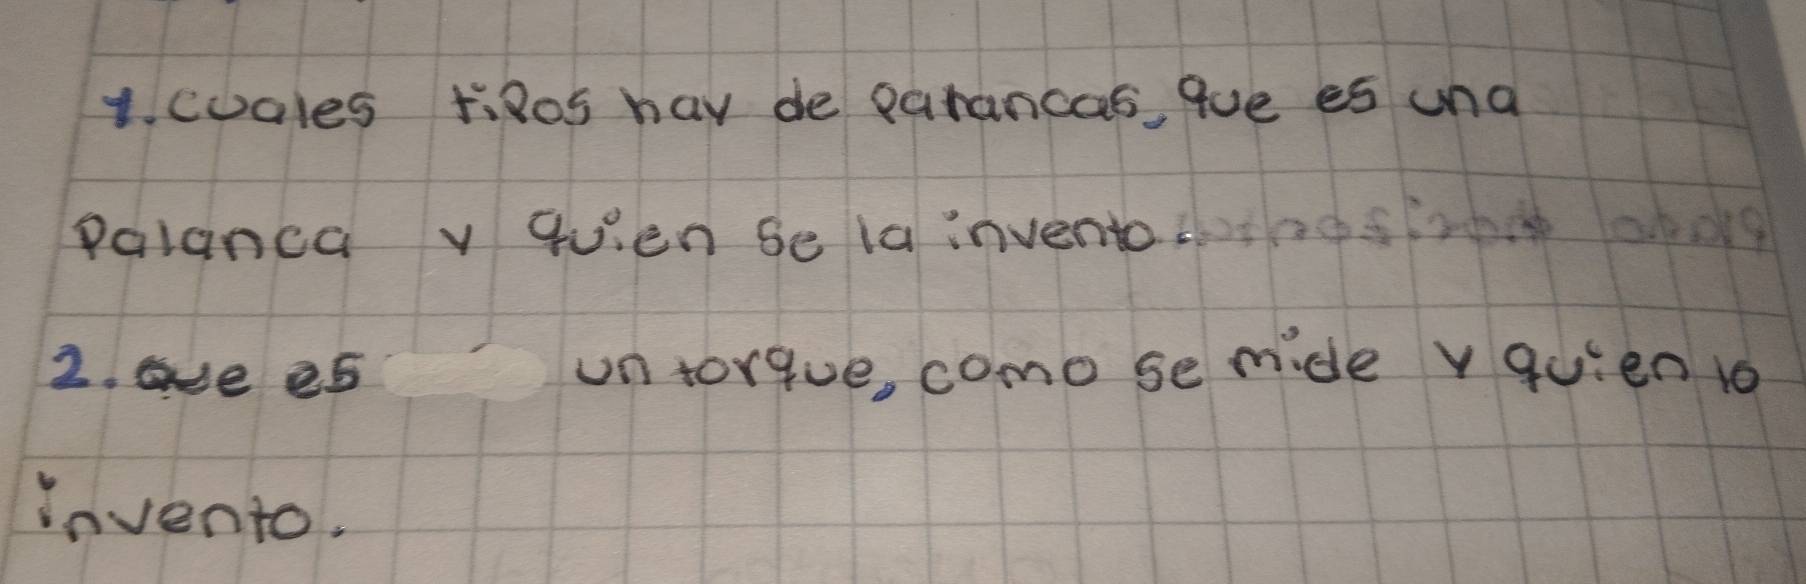 1. cuales tipos hay de parancas, que es una
palanca y quien se la invento.
2. que es un torque, como se mide y quien lo
invento.